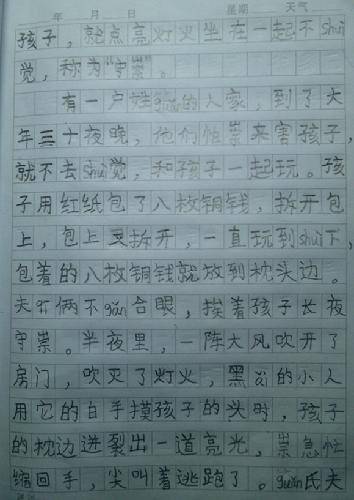 年 月 日 星期 天气
孩子，就点亮灯火坐在一起不shuì
觉，称为“守祟”。
有一户姓guǎn的人家，到了大
年三十夜晚，他们怕祟来害孩子，
就不去shuì觉，和孩子一起玩。孩
子用红纸包了八枚铜钱，拆开包
上，包上又拆开，一直玩到shuì下，
包着的八枚铜钱就放到枕头边。
夫qī俩不gǎn合眼，挨着孩子长夜
守祟。半夜里，一阵大风吹开了
房门，吹灭了灯火，黑 的小人
用它的白手摸孩子的头时，孩子
的枕边迸裂出一道亮光，祟急忙
缩回手，尖叫着逃跑了。guǎn氏夫